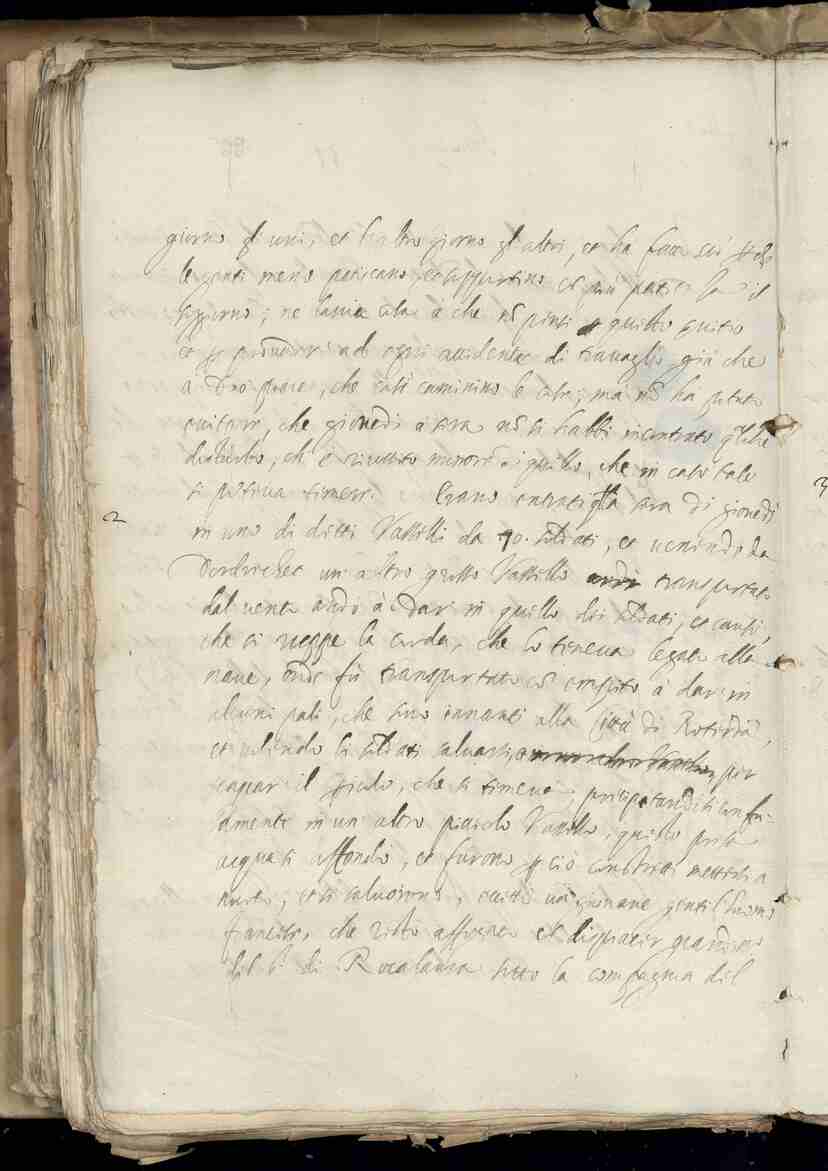 giorno gl'uni, et l'altro giorno gl'altri, et ha fatto
le genti meno patiscano, et
; ne lascia altro à che nõ pensi et questo
et ꝑ proveder ad ogni accidente di travaglio già che
a Dio piace, che così caminino le cose; ma nõ ha potuto
evitare, che giovedi à sera nõ si habbi incontrato qlche
disturbo, ch'è riuscito minore di quello, che in caso tale
si poteva temere. Erano entrati qlla sera di giovedi
2
in uno di detti Vasselli da 90. soldati, et venendo da
Dordrechet un altro grosso Vassello transportato
dal vento andò à dar in quello dei soldati, et causò,
che si ruppe la corda, che lo teneva legato alla
nave, onde fù transportato cõ empito à dar in
alcuni pali, che sono innanti alla Città di Roterdã,
et volendo li soldati salvarsi, per
scapar il ꝑicolo, che si temeva, precipitandosi confu-
samente in un altro picciolo Vassello, questo preso
acqua si affondò, et furono ꝑ ciò constretti mettersi a
nuoto, et si salvorono, eccetto un giovane gentilhuomo
francese, che restò affogato cõ dispiacer grandissimo
del Sr di Rocalaura sotto la compagnia del